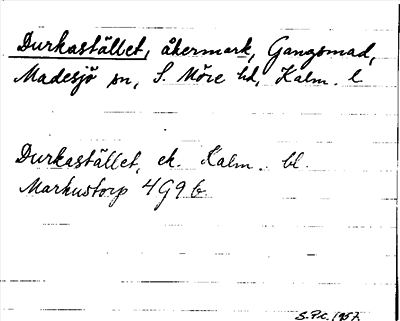 Durkastället, åkermark, Gangsmad,
Madesjö sn, S. Möre hd, Kalm. l
Durkastället, ek. Kalm. bl.
Markustorp 4G9b.
S.P.C. 1957.